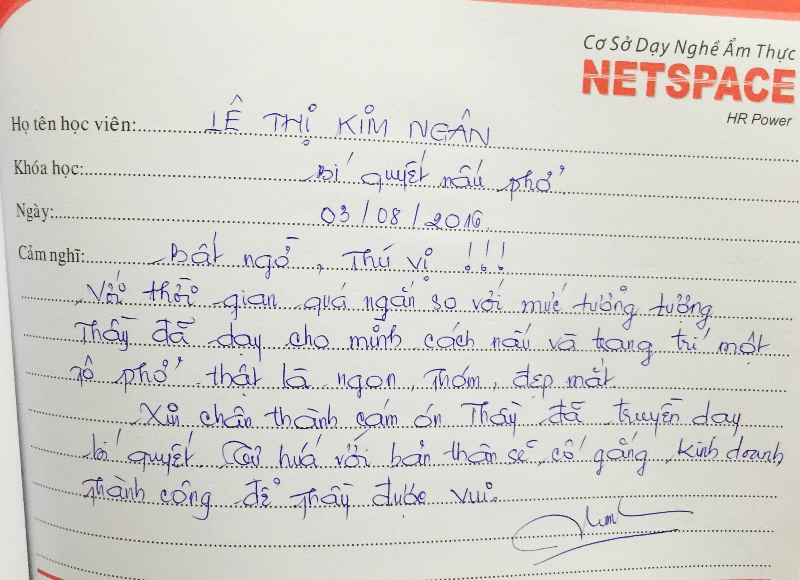 Cơ Sở Dạy Nghề Ẩm Thực
NETSPACE
HR Power
Họ tên học viên: LÊ THỊ KIM NGÂN
Khóa học: Bí quyết nấu phở
Ngày: 03/08/2016
Cảm nghĩ: Bất ngờ, Thú vị !!!
Với thời gian quá ngắn so với mức tưởng tượng
Thầy đã dạy cho mình cách nấu và trang trí một
tô phở thật là ngon, thơm, đẹp mắt
Xin chân thành cám ơn Thầy đã truyền dạy
bí quyết. Tự hứa với bản thân sẽ cố gắng, kinh doanh
thành công để Thầy được vui.